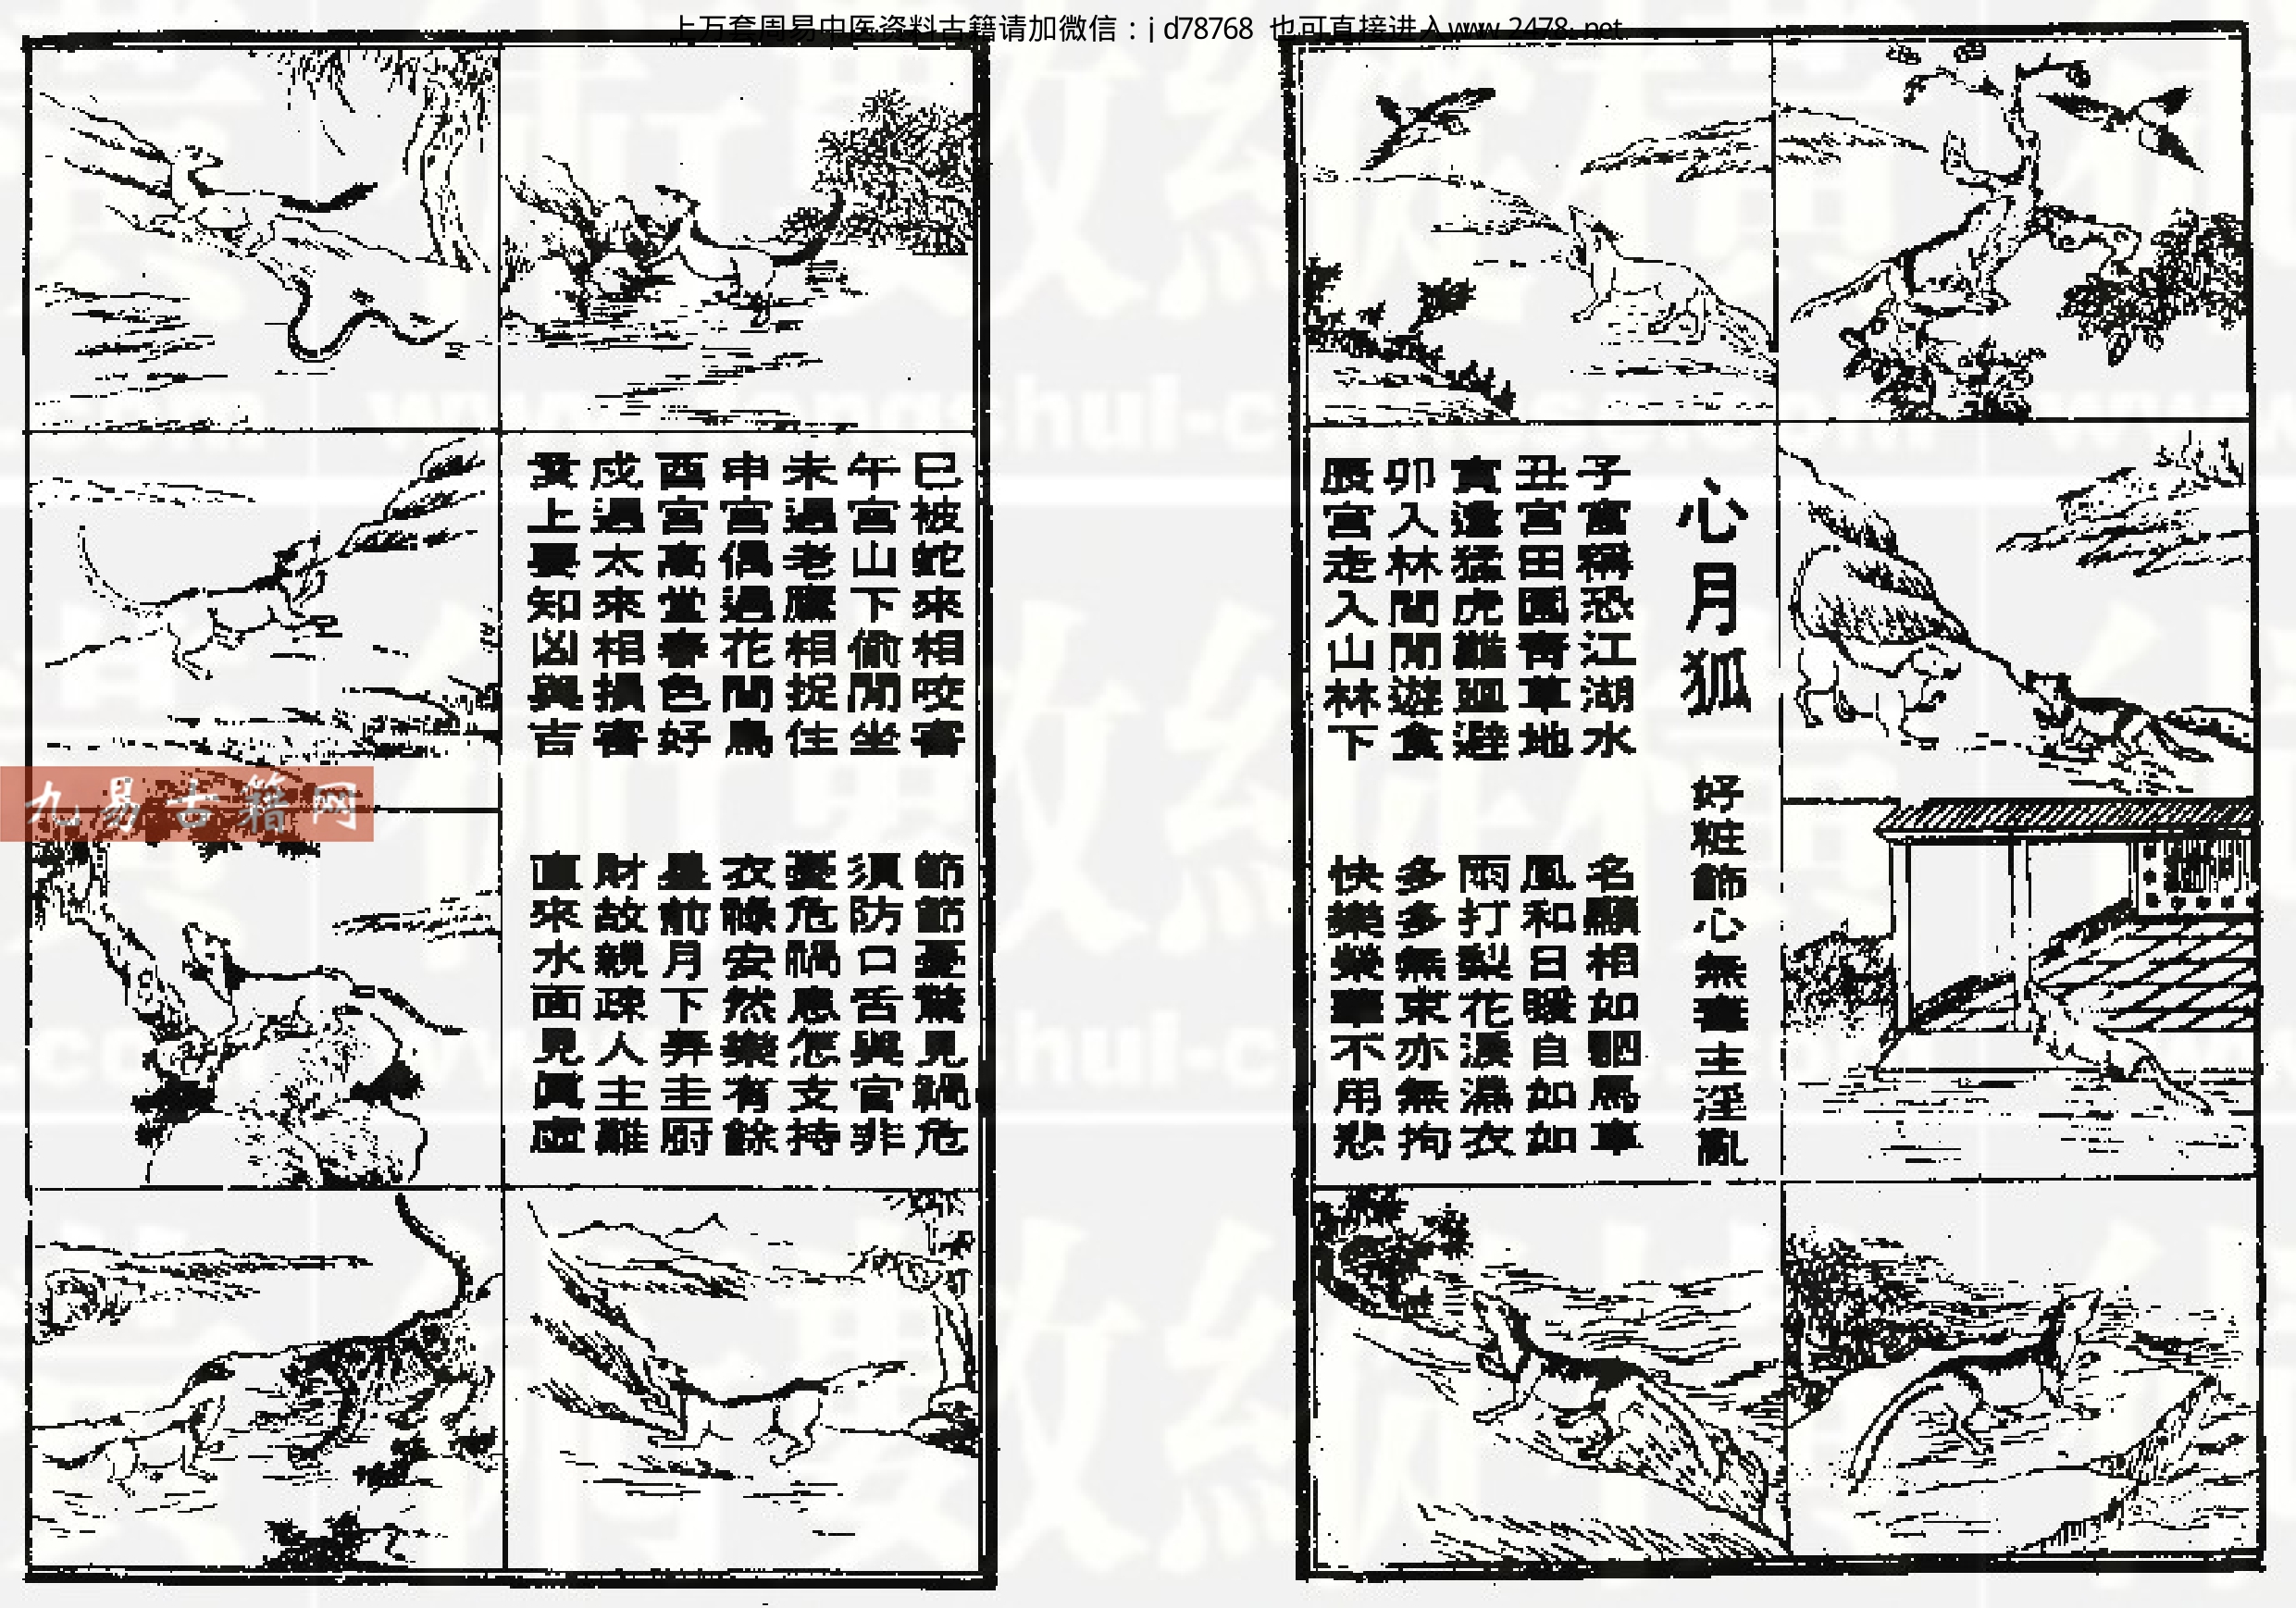 上万套周易中医资料古籍请加微信：jd78768 也可直接进入www.2478.net
心月狐 好粧飾心無毒主淫亂
子宮稱恐江湖水 名顯相如駟馬車
丑宮田園青草地 風和日暖自如如
寅遭猛虎難廻避 雨打梨花淚濕衣
卯入林間閒遊食 多多無束亦無拘
辰宮走入山林下 快樂樂華不用悲
巳被蛇來相咬害 節節憂驚見禍危
午宮山下偷閒坐 須防口舌與官非
未過老鷹相捉住 憂危禍患怎支持
申宮偶過花間鳥 衣祿安然樂有餘
酉宮高堂春色好 星前月下弄圭厨
戍過太來相損害 財故親疎人主難
上要知凶與吉 直來水面見眞虛
九易古籍网